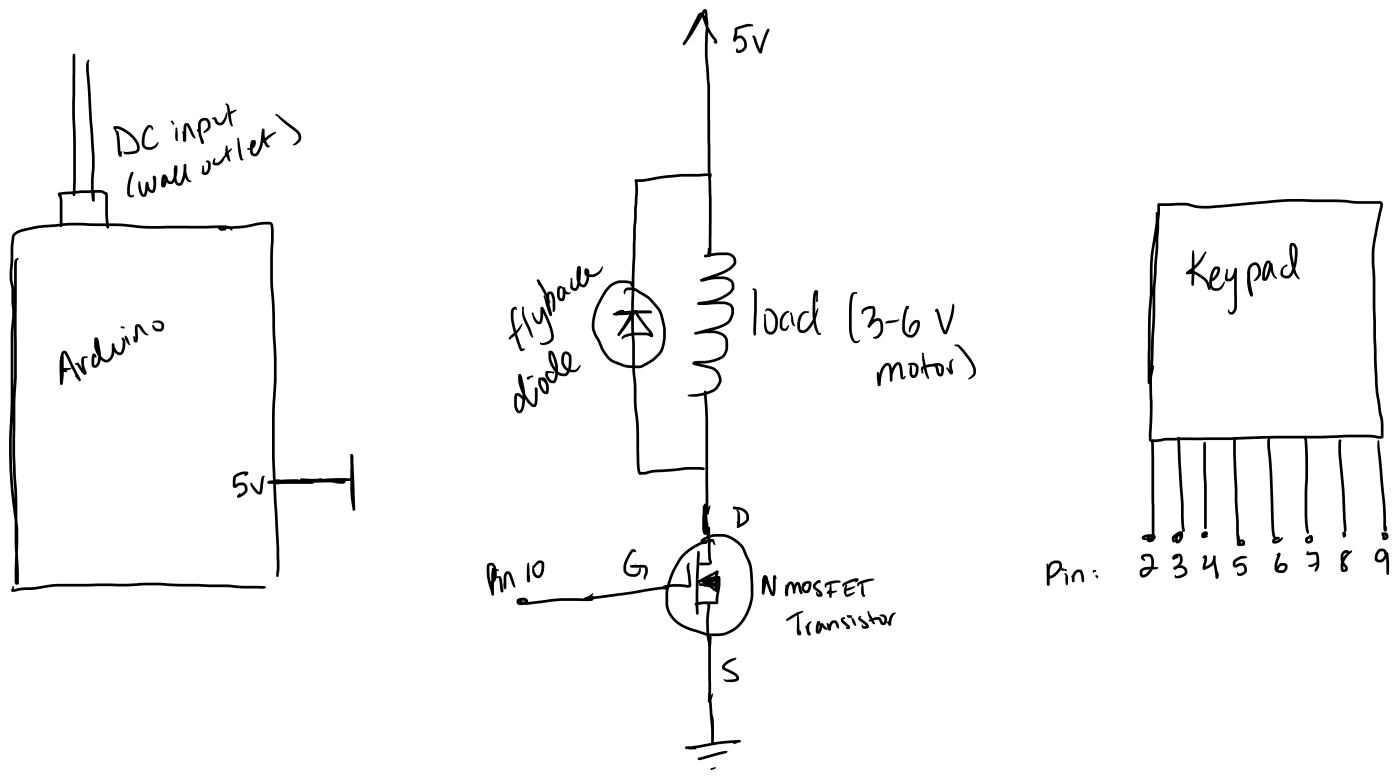 DC input
(wall outlet)
Arduino
5V
5V
flyback
diode
load (3-6 V
motor)
D
G
Pin 10
N MOSFET
Transistor
S
Keypad
Pin: 2 3 4 5 6 7 8 9